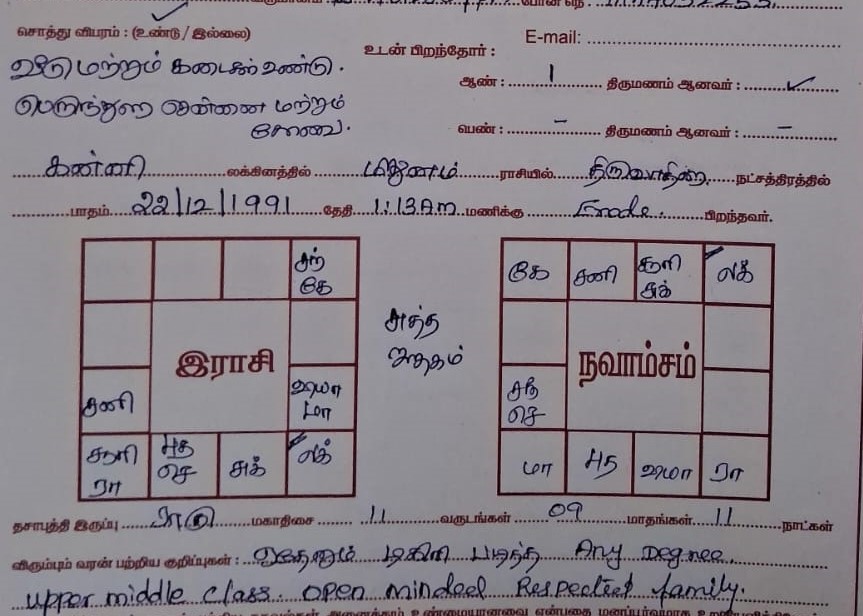 சொத்து விபரம் : (உண்டு / இல்லை)
உடன் பிறந்தோர் : E-mail:
வீடு மற்றும் கடைகள் உண்டு.
ஆண் : 1 திருமணம் ஆனவர் : ✓
பெருந்துறை சென்னை மற்றும்
கோவை.
பெண் : – திருமணம் ஆனவர் : –
கன்னி லக்கினத்தில் மிதுனம் ராசியில் திருவாதிரை நட்சத்திரத்தில்
பாதம் 22/12/1991 தேதி 1:13 A.m மணிக்கு Erode. பிறந்தவர்.
சந்
கே
கே சனி சூரி
சுக் லக்
இராசி
சுத்த
ஜாதகம்
நவாம்சம்
சனி
மா
சந்
செ
சூரி
ரா புத
செ சுக் லக்
மா புத ரா
தசாபுத்தி இருப்பு ராகு மகாதிசை 11 வருடங்கள் 09 மாதங்கள் 11 நாட்கள்
விரும்பும் வரன் பற்றிய குறிப்புகள் : ஏதேனும் டிகிரி படித்த Any Degree.
upper middle class. open minded Respected family.